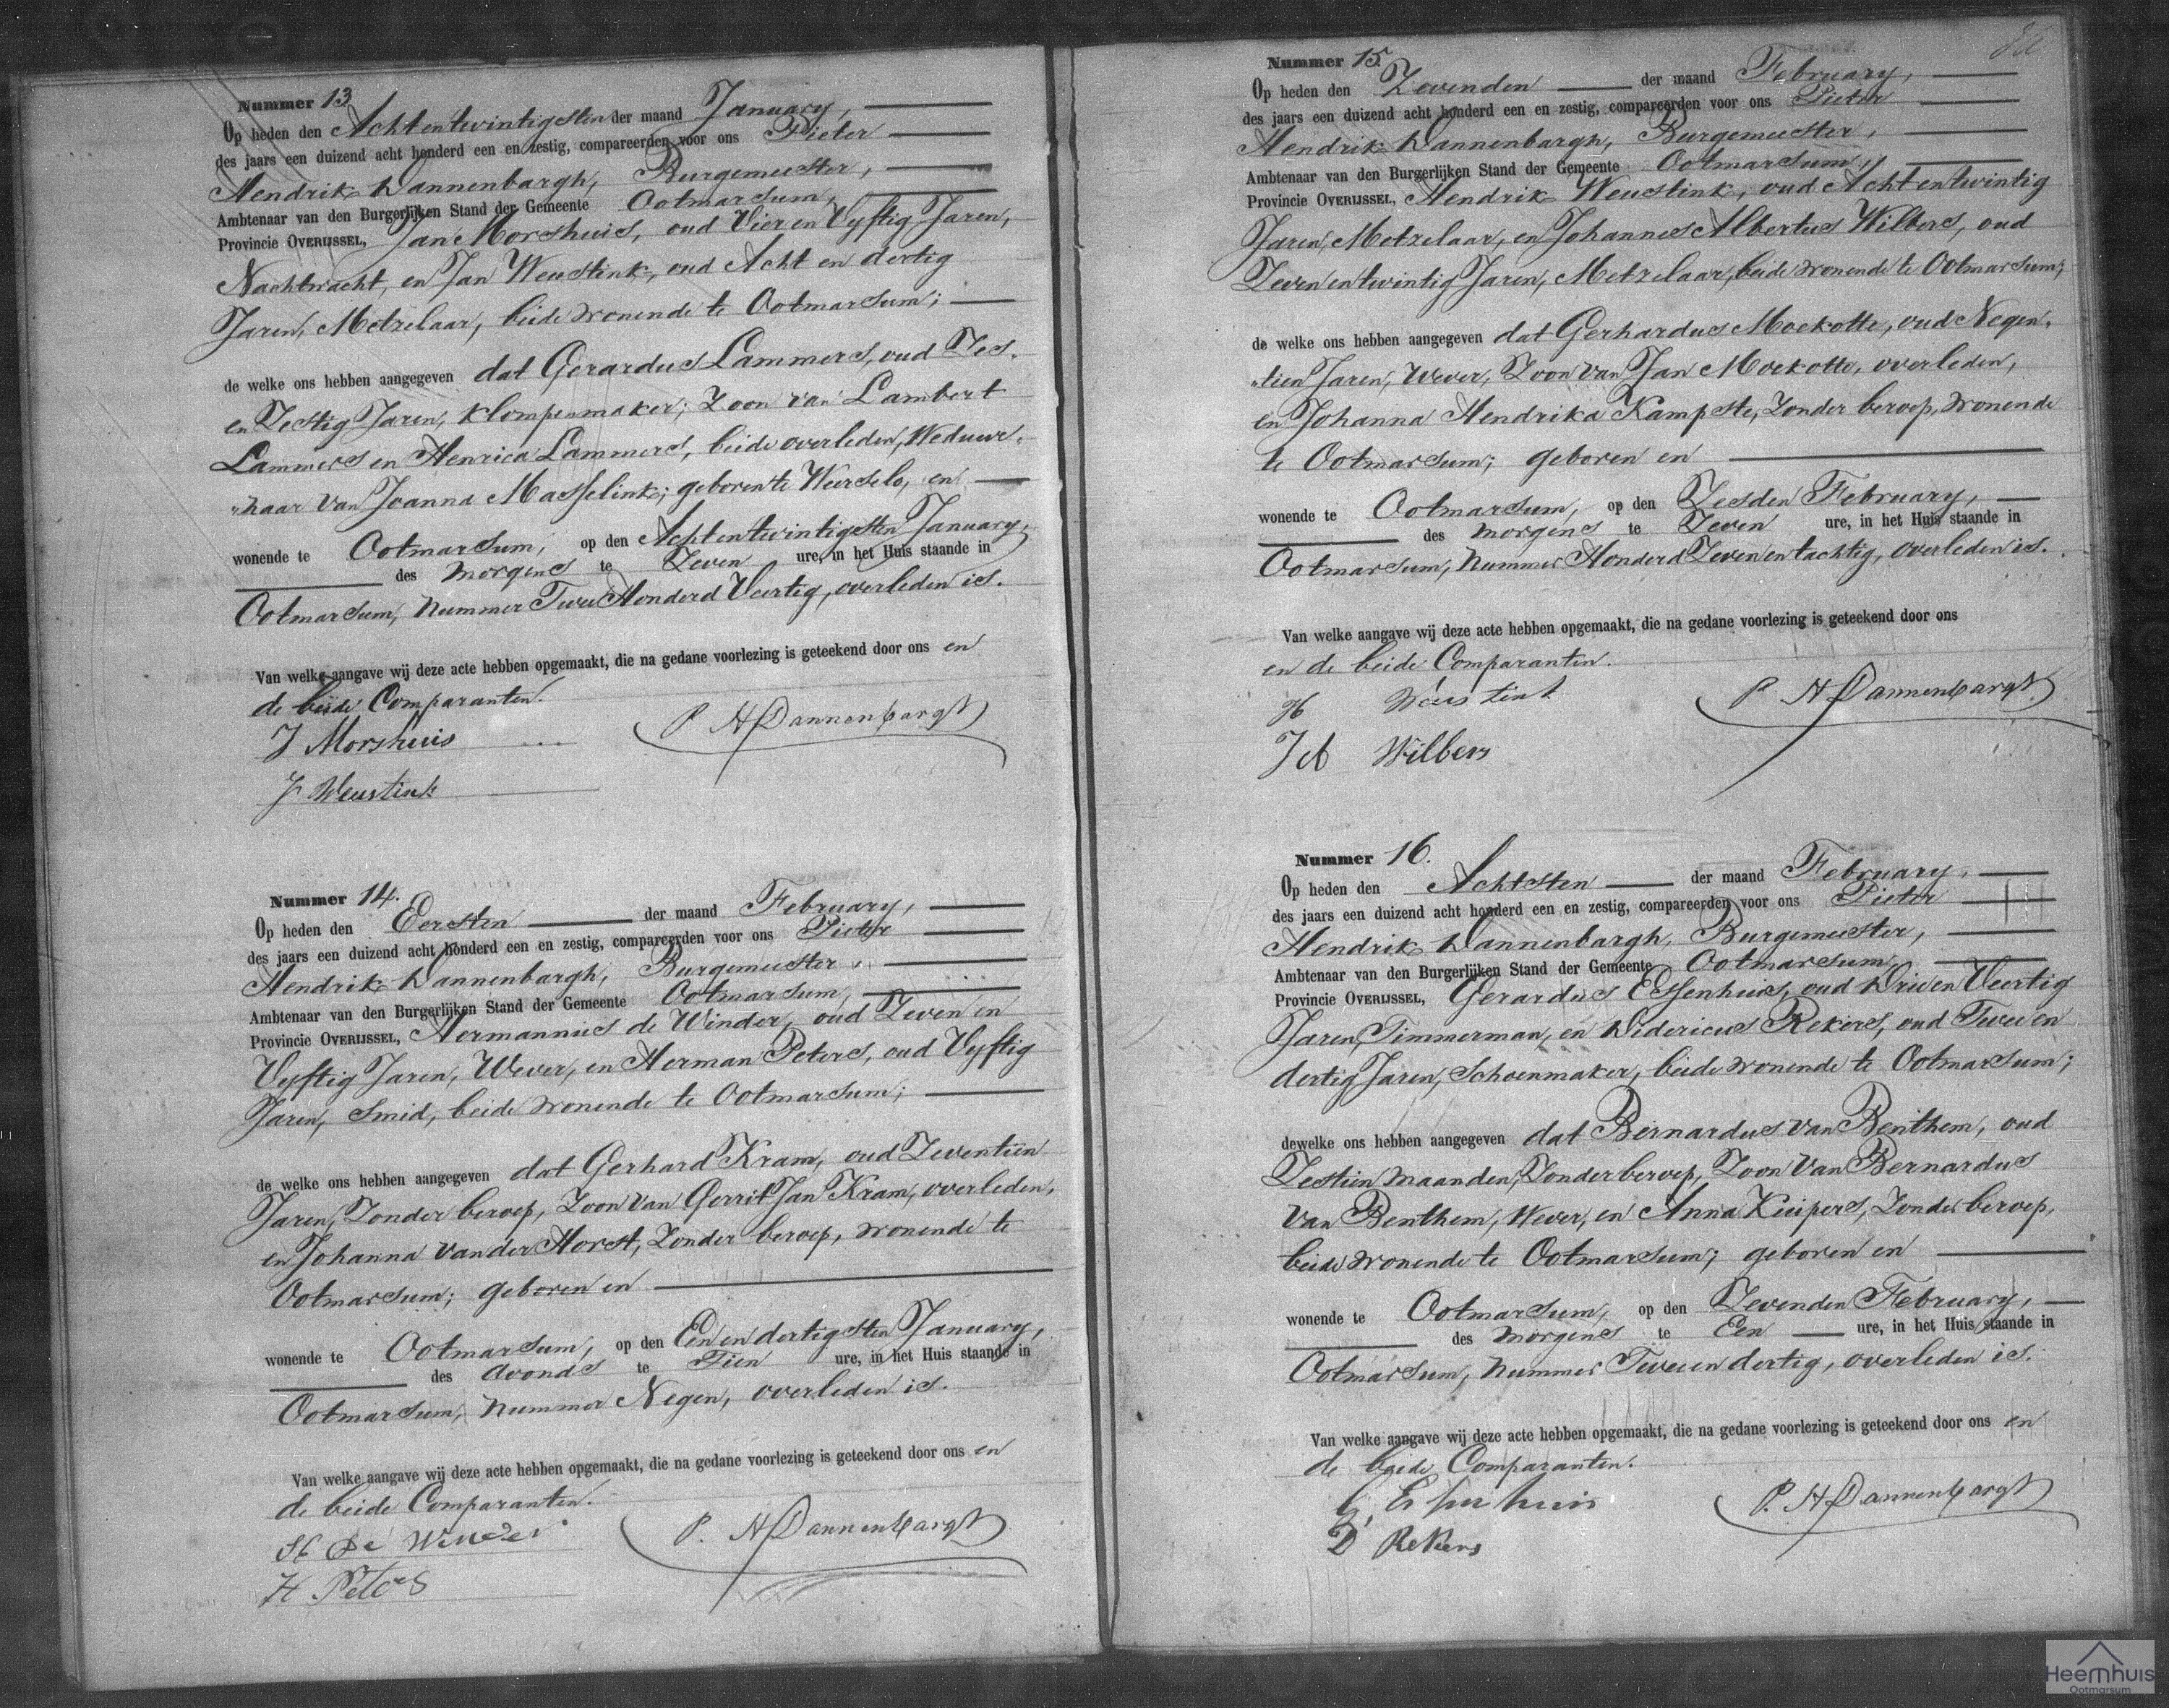 Nummer 13
Op heden den Achtentwintigsten der maand January,
des jaars een duizend acht honderd een en zestig, compareerden voor ons Pieter
Hendrik Dannenbargh, Burgemeester,
Ambtenaar van den Burgerlijken Stand der Gemeente Ootmarsum,
Provincie OVERIJSSEL, Jan Morshuis, oud Vier en Vyftig Jaren,
Nachtwacht, en Jan Weustink, oud Acht en dertig
Jaren, Metzelaar, beide wonende te Ootmarsum;
de welke ons hebben aangegeven dat Gerardus Lammers, oud Zes-
en Zestig Jaren, Klompenmaker; Zoon van Lambert
Lammers en Henrica Lammers, beide overleden, Weduwe-
naar van Joanna Masselink; geboren te Weerselo, en
wonende te Ootmarsum, op den Achtentwintigsten January,
des morgens te Zeven ure, in het Huis staande in
Ootmarsum, Nummer Twee Honderd Veertig, overleden is.
Van welke aangave wij deze acte hebben opgemaakt, die na gedane voorlezing is geteekend door ons en
de beide Comparanten.
J Morshuis
P H Dannenbargh
J Weustink
Nummer 14.
Op heden den Eersten der maand February,
des jaars een duizend acht honderd een en zestig, compareerden voor ons Pieter
Hendrik Dannenbargh, Burgemeester,
Ambtenaar van den Burgerlijken Stand der Gemeente Ootmarsum,
Provincie OVERIJSSEL, Hermannus de Winder, oud Zeven en
Vyftig Jaren, Wever, en Herman Peters, oud Vyftig
Jaren, Smid, beide wonende te Ootmarsum;
de welke ons hebben aangegeven dat Gerhard Kram, oud Zeventien
Jaren, Zonder beroep, Zoon van Gerrit Jan Kram, overleden,
en Johanna van der Horst, Zonder beroep, wonende te
Ootmarsum; geboren en
wonende te Ootmarsum, op den Een en dertigsten January,
des avonds te Tien ure, in het Huis staande in
Ootmarsum, Nummer Negen, overleden is.
Van welke aangave wij deze acte hebben opgemaakt, die na gedane voorlezing is geteekend door ons en
de beide Comparanten.
H De Winder
P. H Dannenbargh
H Peters
Nummer 15.
Op heden den Zevenden der maand February,
des jaars een duizend acht honderd een en zestig, compareerden voor ons Pieter
Hendrik Dannenbargh, Burgemeester,
Ambtenaar van den Burgerlijken Stand der Gemeente Ootmarsum,
Provincie OVERIJSSEL, Hendrik Weustink, oud Acht entwintig
Jaren, Metzelaar, en Johannes Albertus Wilbers, oud
Zeven entwintig Jaren, Metzelaar, beide wonende te Ootmarsum;
de welke ons hebben aangegeven dat Gerhardus Moekotte, oud Negen-
tien Jaren, Wever, Zoon van Jan Moekotte, overleden,
en Johanna Hendrika Kampste, Zonder beroep, wonende
te Ootmarsum; geboren en
wonende te Ootmarsum, op den Zesden February,
des morgens te Zeven ure, in het Huis staande in
Ootmarsum, Nummer Honderd Zeven en tachtig, overleden is.
Van welke aangave wij deze acte hebben opgemaakt, die na gedane voorlezing is geteekend door ons
en de beide Comparanten.
H Weustink
P H Dannenbargh
J A Wilbers
Nummer 16.
Op heden den Achtsten der maand February,
des jaars een duizend acht honderd een en zestig, compareerden voor ons Pieter
Hendrik Dannenbargh, Burgemeester,
Ambtenaar van den Burgerlijken Stand der Gemeente Ootmarsum,
Provincie OVERIJSSEL, Gerardus Essenhuis, oud Drie en Veertig
Jaren, Timmerman, en Didericus Rekers, oud Twee en
dertig Jaren, Schoenmaker, beide wonende te Ootmarsum;
dewelke ons hebben aangegeven dat Bernardus van Benthem, oud
Zestien maanden, Zonder beroep, Zoon van Bernardus
van Benthem, Wever, en Anna Kuipers, Zonder beroep,
beide wonende te Ootmarsum; geboren en
wonende te Ootmarsum, op den Zevenden February,
des morgens te Een ure, in het Huis staande in
Ootmarsum, Nummer Twee en dertig, overleden is.
Van welke aangave wij deze acte hebben opgemaakt, die na gedane voorlezing is geteekend door ons en
de beide Comparanten.
G, Essenhuis
P. H Dannenbargh
D Rekers
Heemhuis
Ootmarsum